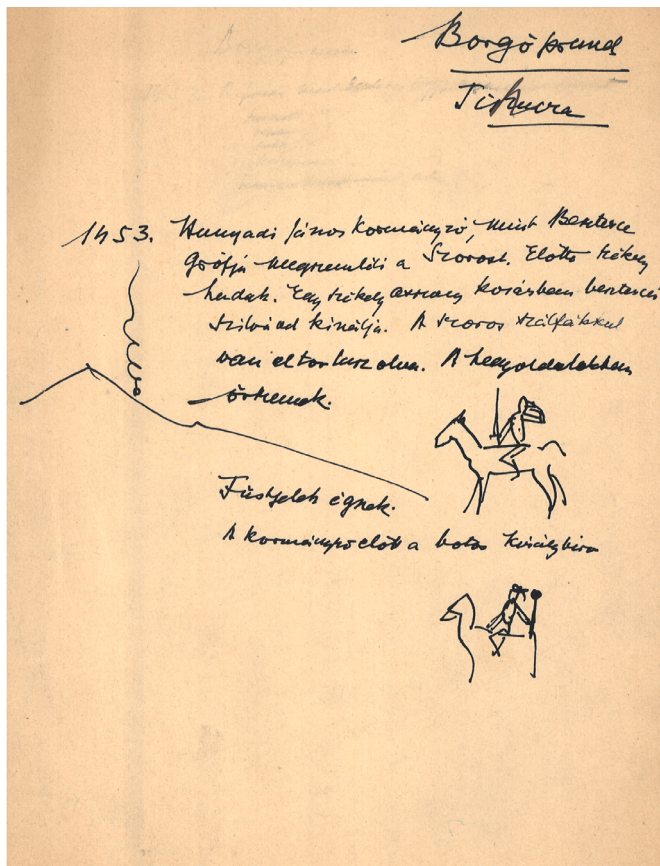 Borgóprund
Tihucra
1453. Hunyadi János kormányzó, mint Beszterce
grófja megszemléli a Szorost. Előtte székely
hadak. Egy székely asszony kosárban besztercei
szilvád kinálja. A szoros szálfákkal
van eltorlaszolva. A hegyoldalakban
őrszemek.
Füstjelek égnek.
A kormányzó előtt a botos királybíró